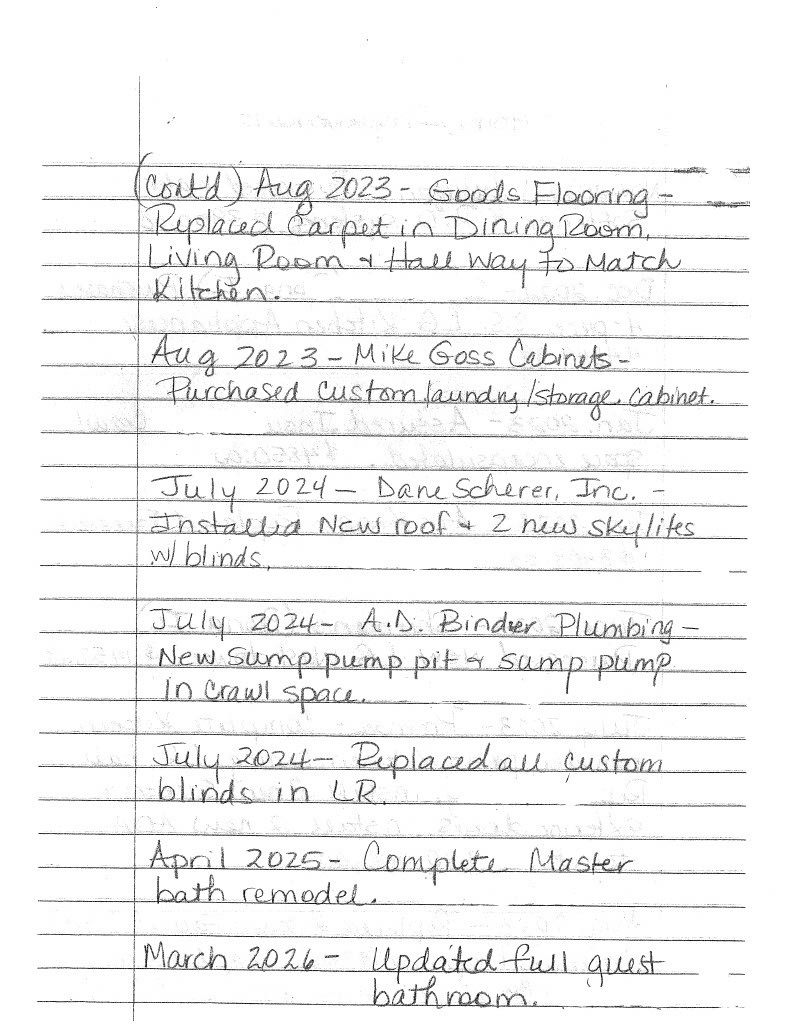 (Cont'd) Aug 2023 - Goods Flooring -
Replaced Carpet in Dining Room,
Living Room & Hall Way to Match
Kitchen.
Aug 2023 - Mike Goss Cabinets -
Purchased custom laundry/storage cabinet.
July 2024 - Dane Scherer, Inc. -
Installed New roof & 2 new skylites
w/ blinds.
July 2024 - A.D. Binder Plumbing -
New sump pump pit & sump pump
in crawl space.
July 2024 - Replaced all custom
blinds in LR.
April 2025 - Complete Master
bath remodel.
March 2026 - Updated full guest
bathroom.